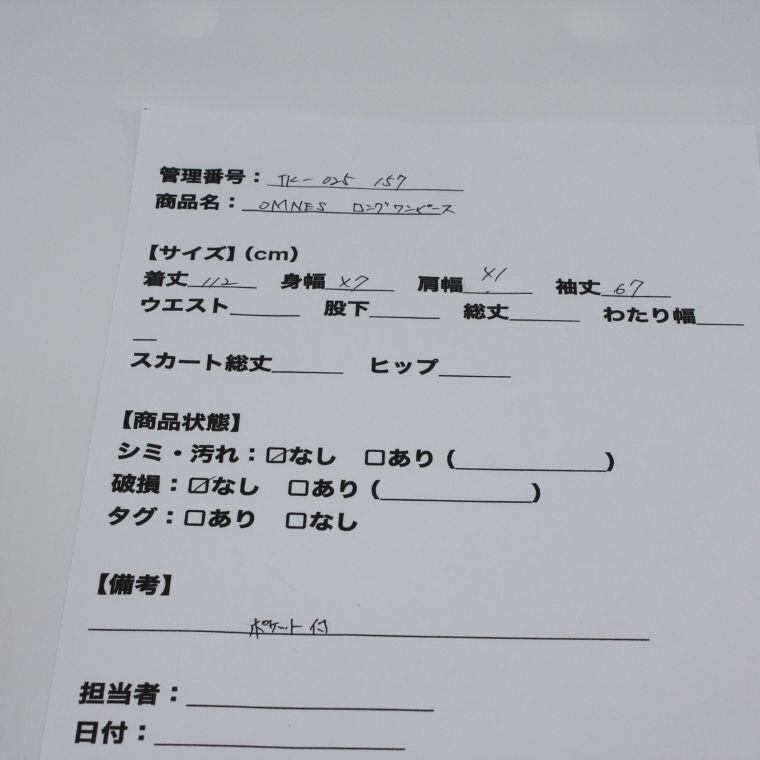 管理番号：TK-025 157
商品名：OMNES ロングワンピース
【サイズ】(cm)
着丈 112 身幅 47 肩幅 41 袖丈 67
ウエスト______ 股下______ 総丈______ わたり幅____
__
スカート総丈______ ヒップ______
【商品状態】
シミ・汚れ：☑なし □あり (_____________)
破損：☑なし □あり (_____________)
タグ：□あり □なし
【備考】
ポケット付
担当者：_____________________
日付：_____________________